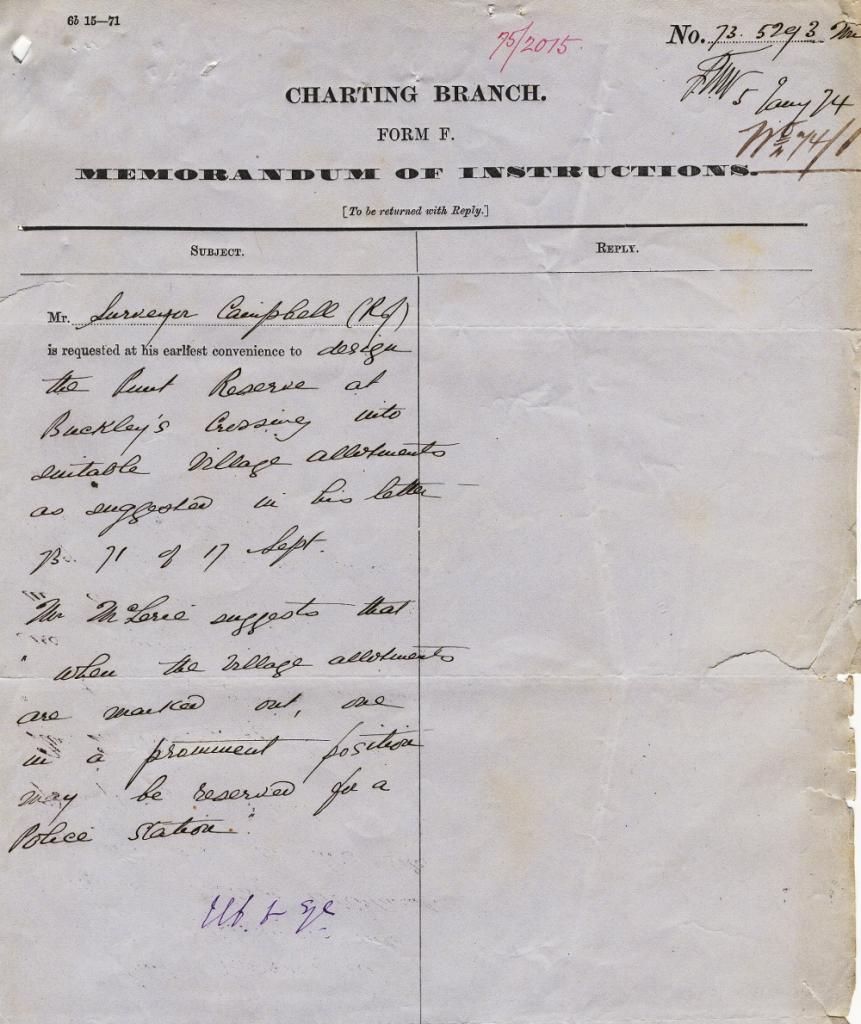 6b 15—71
75/2015.
No. 73. 5293
5 Jany 74
CHARTING BRANCH.
FORM F.
MEMORANDUM OF INSTRUCTIONS.
[To be returned with Reply.]
SUBJECT.
REPLY.
Mr. Surveyor Campbell (
is requested at his earliest convenience to design
the Punt Reserve at
Buckley's Crossing into
suitable Village allotments
as suggested in his letter
73. 71 of 17 Sept.
Mr McLerie suggests that
"when the Village allotments
are marked out, one
in a prominent position
may be reserved for a
Police Station."